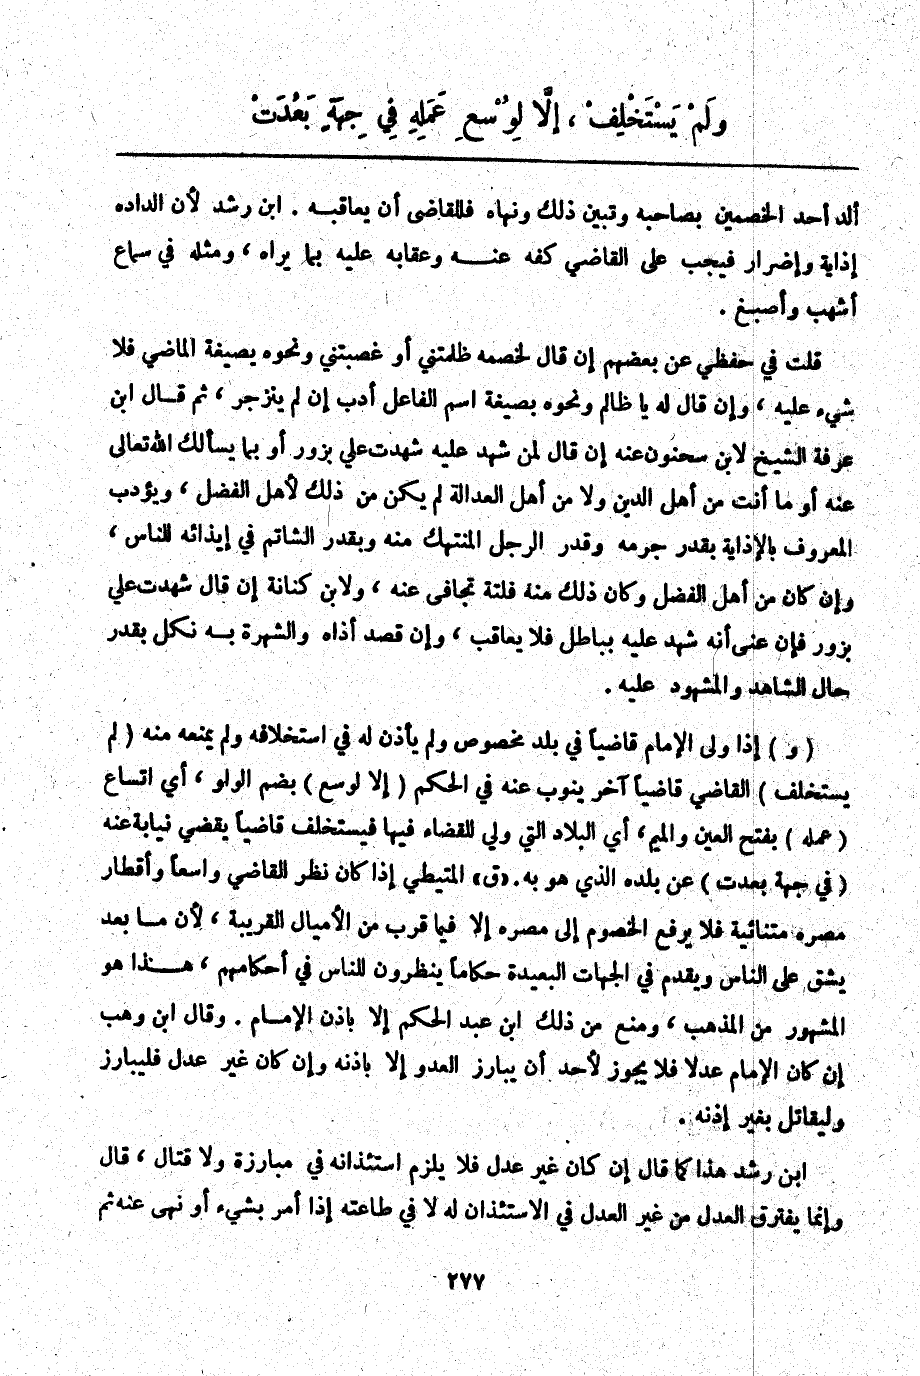 ولَمْ يَسْتَخْلِفْ ، إلَّا لِوُسْعِ عَمَلِهِ فِي جِهَةٍ بَعُدَتْ
ألد أحد الخصمين بصاحبه وتبين ذلك ونهاه فللقاضي أن يعاقبه . ابن رشد لأن الداده
إذاية وإضرار فيجب على القاضي كفه عنه وعقابه عليه بما يراه ، ومثله في سماع
أشهب وأصبغ .
قلت في حفظي عن بعضهم إن قال لخصمه ظلمتني أو غصبتني ونحوه بصيغة الماضي فلا
شيء عليه ، وإن قال له يا ظالم ونحوه بصيغة اسم الفاعل أدب إن لم ينزجر ، ثم قال ابن
عرفة الشيخ لابن سحنون عنه إن قال لمن شهد عليه شهدت علي بزور أو بما يسألك الله تعالى
عنه أو ما أنت من أهل الدين ولا من أهل العدالة لم يكن من ذلك لأهل الفضل ، ويؤدب
المعروف بالإذاية بقدر جرمه وقدر الرجل المنتهك منه وبقدر الشاتم في إيذائه للناس ،
وإن كان من أهل الفضل وكان ذلك منه فلتة تجافى عنه ، ولابن كنانة إن قال شهدت علي
بزور فإن عنى أنه شهد عليه بباطل فلا يعاقب ، وإن قصد أذاه والشهرة به نكل بقدر
حال الشاهد والمشهود عليه .
( و ) إذا ولى الإمام قاضياً في بلد مخصوص ولم يأذن له في استخلافه ولم يمنعه منه ( لم
يستخلف ) القاضي قاضياً آخر ينوب عنه في الحكم ( إلا لوسع ) بضم الواو ، أي اتساع
( عمله ) بفتح العين والميم ، أي البلاد التي ولي للقضاء فيها فيستخلف قاضياً يقضي نيابة عنه
( في جهة بعدت ) عن بلده الذي هو به . «ق» المتيطي إذا كان نظر القاضي واسعاً وأقطار
مصره متنائية فلا يرفع الخصوم إلى مصره إلا فيما قرب من الأميال القريبة ، لأن ما بعد
يشق على الناس ويقدم في الجهات البعيدة حكاماً ينظرون للناس في أحكامهم ، هذا هو
المشهور من المذهب ، ومنع من ذلك ابن عبد الحكم إلا باذن الإمام . وقال ابن وهب
إن كان الإمام عدلا فلا يجوز لأحد أن يبارز العدو إلا باذنه وإن كان غير عدل فليبارز
وليقاتل بغير إذنه .
ابن رشد هذا كما قال إن كان غير عدل فلا يلزم استئذانه في مبارزة ولا قتال ، قال
وإنما يفترق العدل من غير العدل في الاستئذان له لا في طاعته إذا أمر بشيء أو نهى عنه ثم
٢٧٧